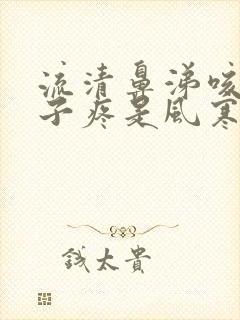 流清鼻涕咳
子疼是風寒
錢太貴